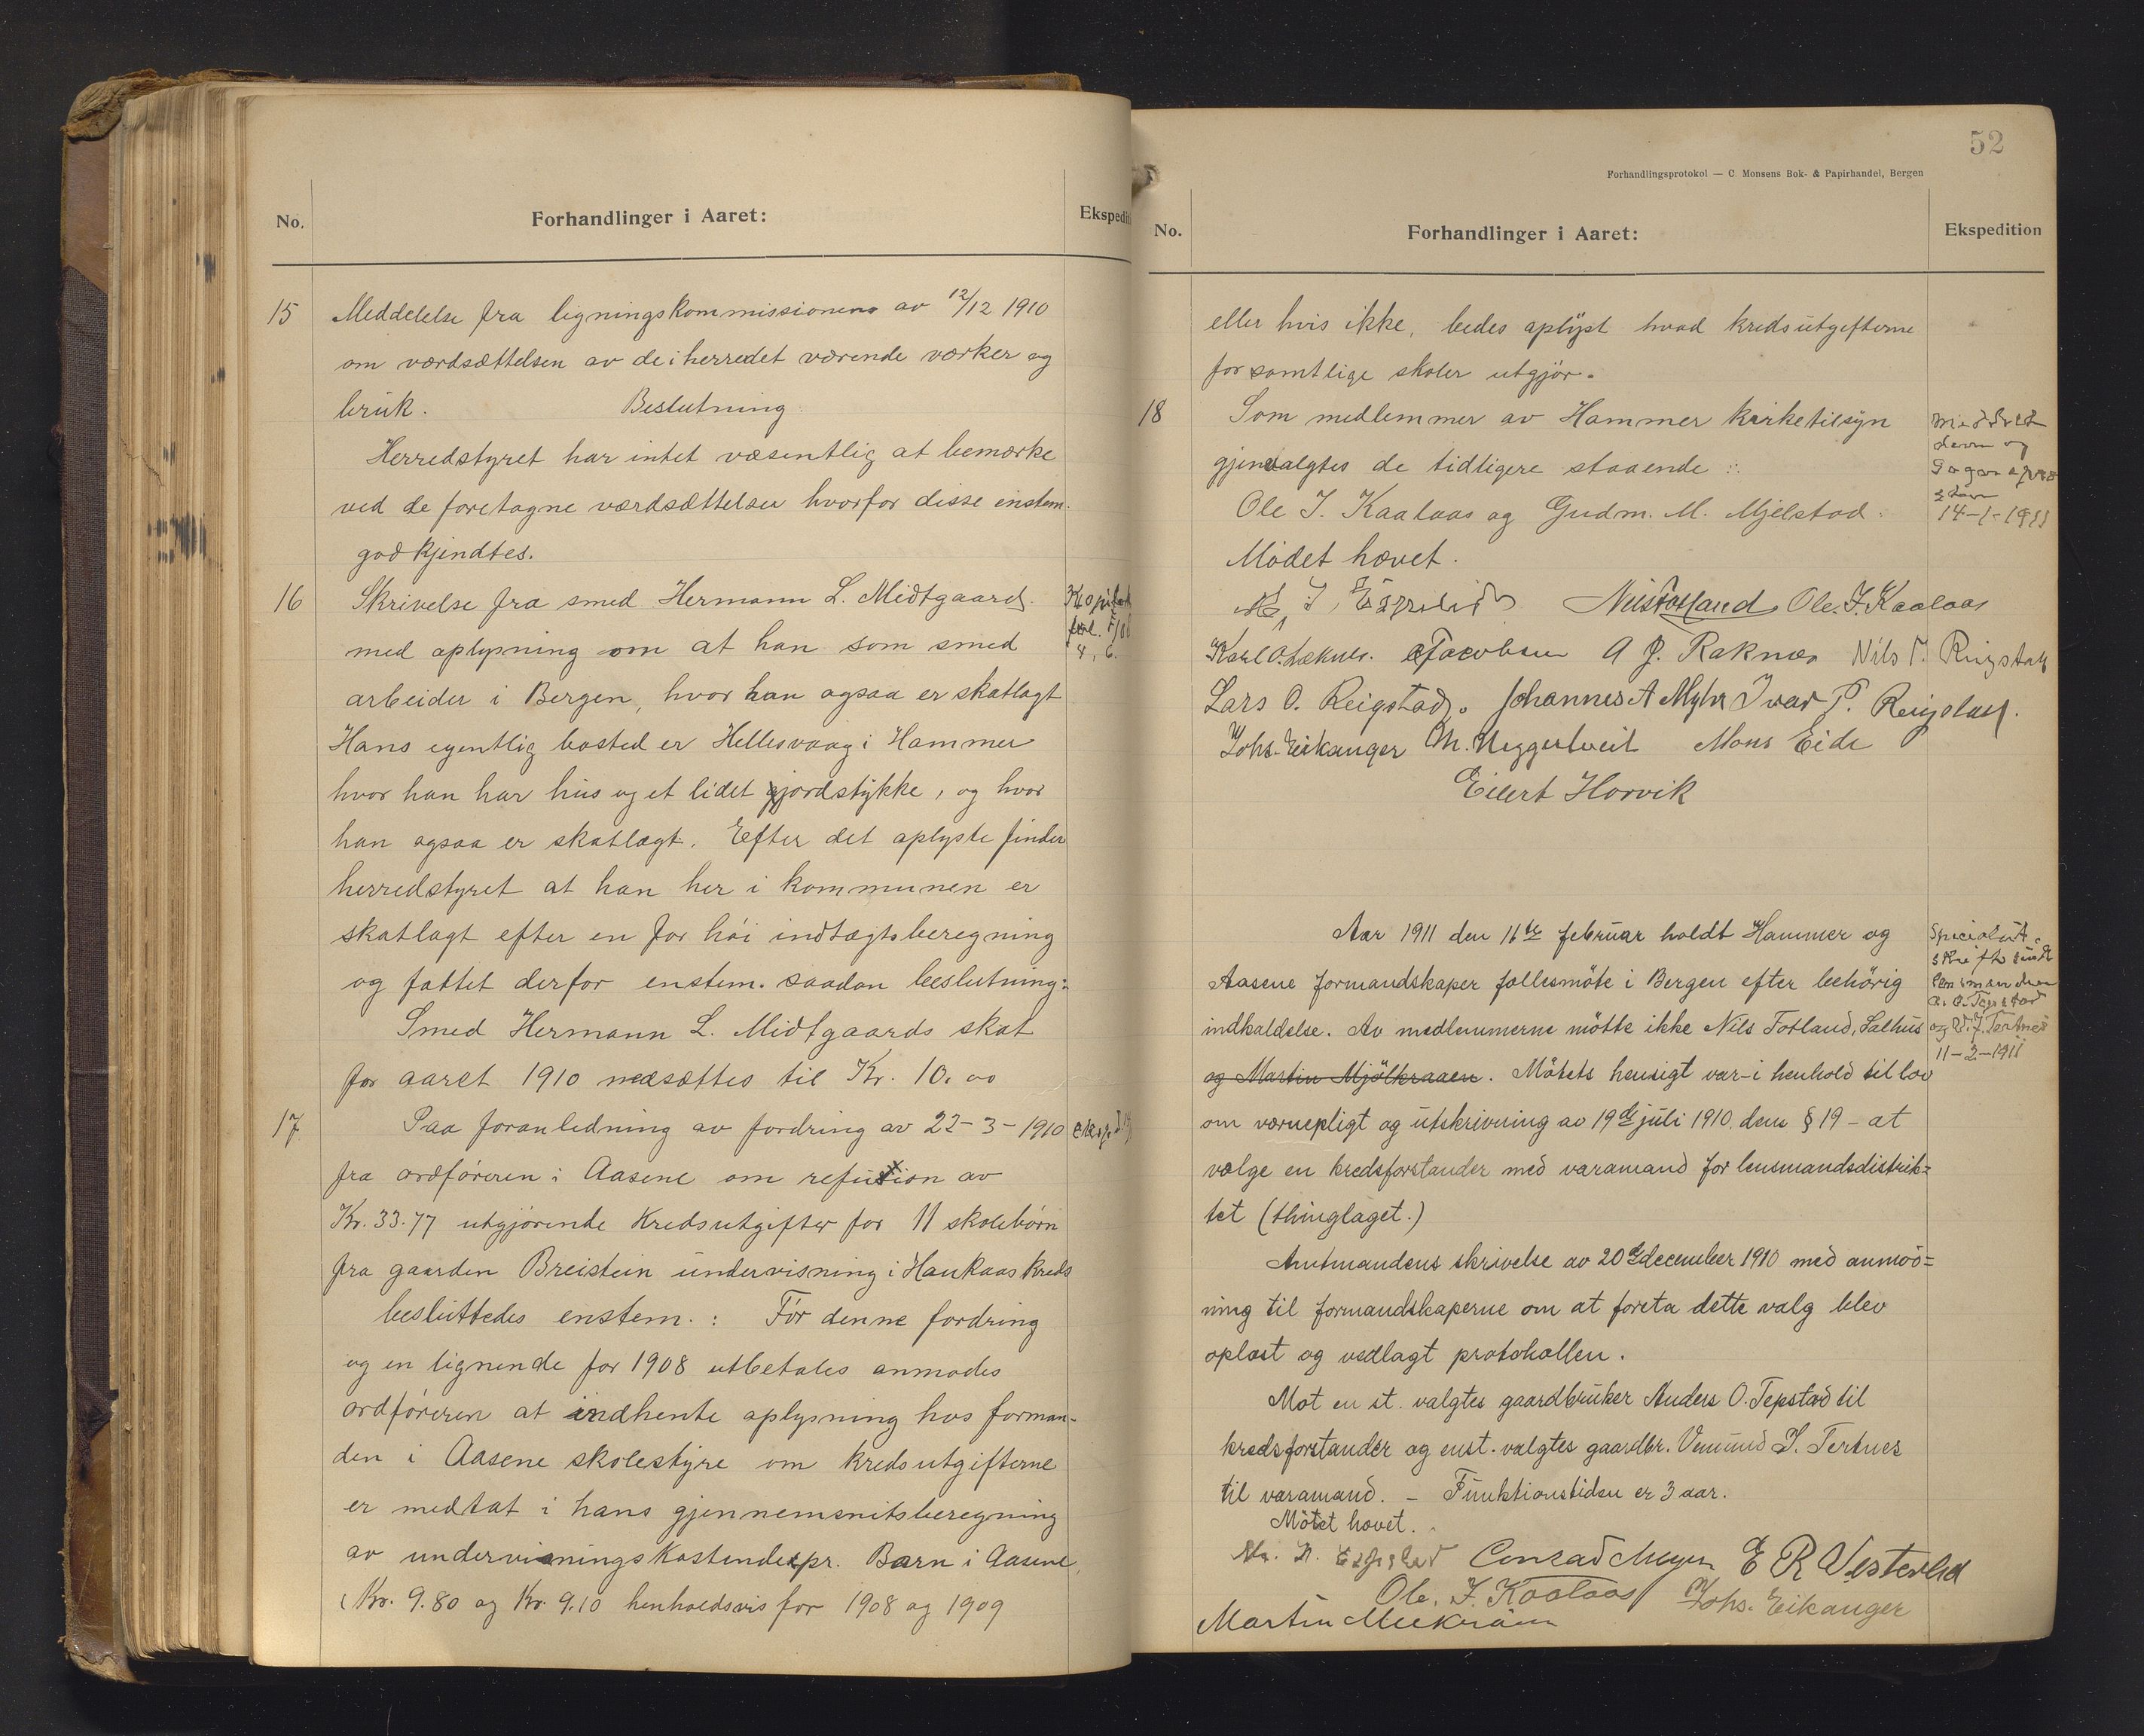 No.
Forhandlinger i Aaret:
Ekspedit
15 Meddelelse fra ligningskommissionen av 12/12 1910
om værdsættelsen av de i herredet værende værker og
bruk. Beslutning
Herredstyret har intet væsentlig at bemærke
ved de foretagne værdsættelser hvorfor disse enstem.
godkjendtes.
16 Skrivelse fra smed Hermann L. Midtgaard
med oplysning om at han som smed
arbeider i Bergen, hvor han ogsaa er skatlagt
Hans egentlig bosted er Hellesvaag i Hammer
hvor han har hus og et lidet jordstykke, og hvor
han ogsaa er skatlagt. Efter det oplyste finder
herredstyret at han her i kommunen er
skatlagt efter en for høi indtægtsberegning
og fattet derfor enstem. saadan beslutning:
Smed Hermann L. Midtgaards skat
for aaret 1910 nedsættes til Kr. 10.00
17 Paa foranledning av fordring av 22-3-1910
fra ordføreren i Aasene om refusion av
Kr. 33.77 utgjørende Kredsutgifter for 11 skolebørn
fra gaarden Breistein undervisning i Haukaas kreds
besluttedes enstem.: Før denne fordring
og en lignende for 1908 utbetales anmodes
ordføreren at indhente oplysning hos forman-
den i Aasene skolestyre om kredsutgifterne
er medtat i hans gjennemsnitsberegning
av undervisningskostende pr. Barn i Aasene
(Kr. 9.80 og Kr. 9.10 henholdsvis for 1908 og 1909
52
Forhandlingsprotokol — C. Monsens Bok- & Papirhandel, Bergen
No.
Forhandlinger i Aaret:
Ekspedition
eller hvis ikke, bedes oplyst hvad kredsutgifterne
for samtlige skoler utgjør.
18 Som medlemmer av Hammer kirketilsyn
gjenvalgtes de tidligere staaende :
Ole J. Kaalaas og Gudm. M. Mjelstad.
14-1-1911
Mødet hævet.
Nils Fotland Ole. J. Kaalaas
Jacobsen A J. Raknes Nils
Lars O. Reigstad. Johannes A Myhr Ivar P. Reigstad.
Johs. Eikanger M. Neggerbveit Mons Eide
Eilert Horvik
Aar 1911 den 16de februar holdt Hammer og
Aasene formandskaper fællesmøte i Bergen efter behörig
indkaldelse. Av medlemmerne mötte ikke Nils Fotland, Salhus
og Martin Mjölkraaen. Mötets hensigt var – i henhold til lov
om værnepligt og utskrivning av 19de juli 1910. dens § 19 – at
vælge en kredsforstander med varamand for lensmandsdistrik=
tet (thinglaget.)
Specialut.
skrift
lensmanden
A. O. Tepstad
og V. J. Tertnes
11-2-1911
Amtmandens skrivelse av 20de december 1910 med anmod=
ning til formandskaperne om at foreta dette valg blev
oplæst og vedlagt protokollen.
Mot en st. valgtes gaardbruker Anders O. Tepstad til
kredsforstander og enst. valgtes gaardbr. Vemund J. Tertnes
til varamand. – Funktionstiden er 3 aar.
Mötet hævet.
Conrad Meyer E R Vesterlid
Ole. J. Kaalaas Johs. Eikanger
Martin